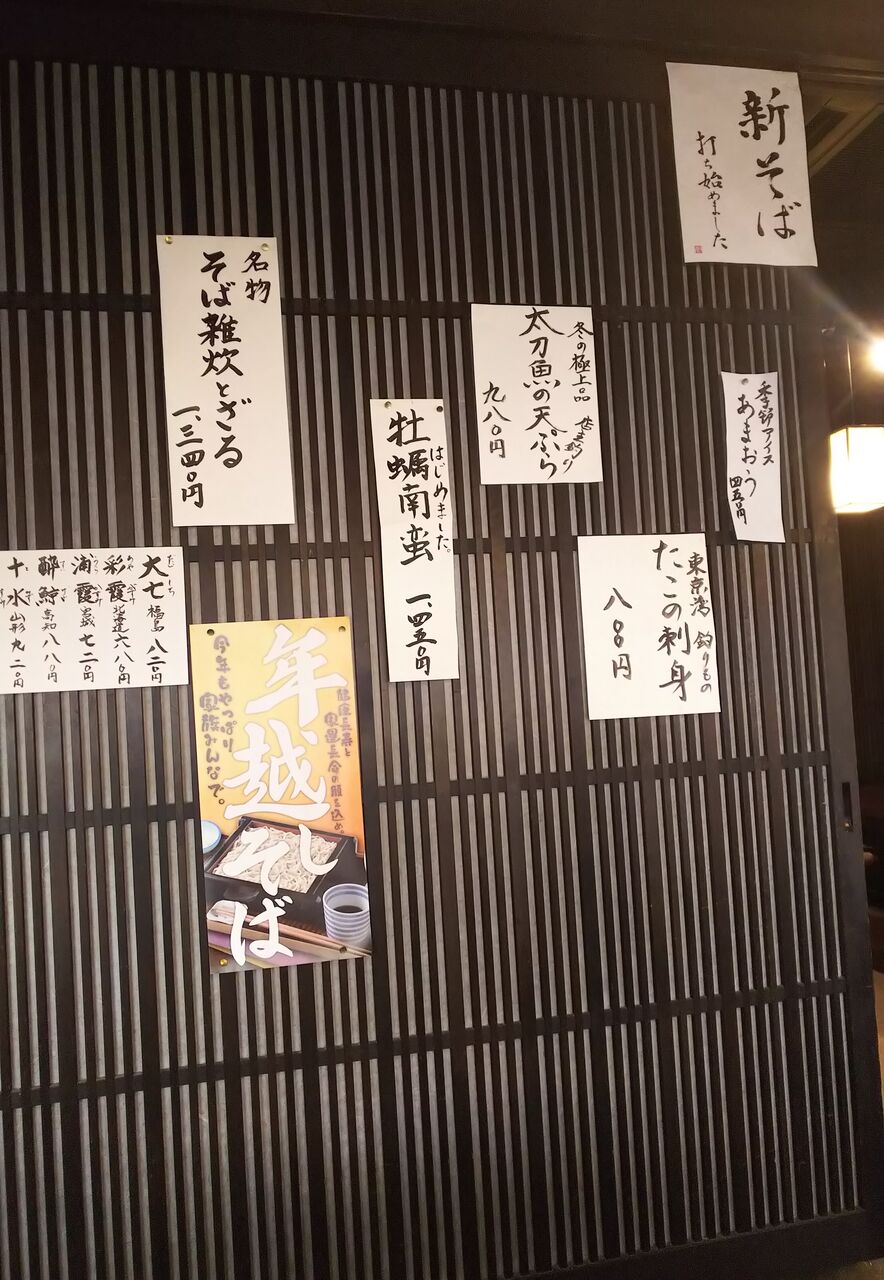 新そば
打ち始めました
名物
そば雑炊とざる
一、三四〇円
冬の極上品
太刀魚の天ぷら
九八〇円
はじめました。
牡蠣南蛮
一、四五〇円
季節アイス
あまおう
四五〇円
東京湾 釣りもの
たこの刺身
八〇〇円
大七 福島 八二〇円
彩霞 北海道 六八〇円
浦霞 宮城 七二〇円
酔鯨 高知 八八〇円
十水 山形 九二〇円
健康長寿と
家運長命の願を込め。
年越しそば
今年もやっぱり
家族みんなで。